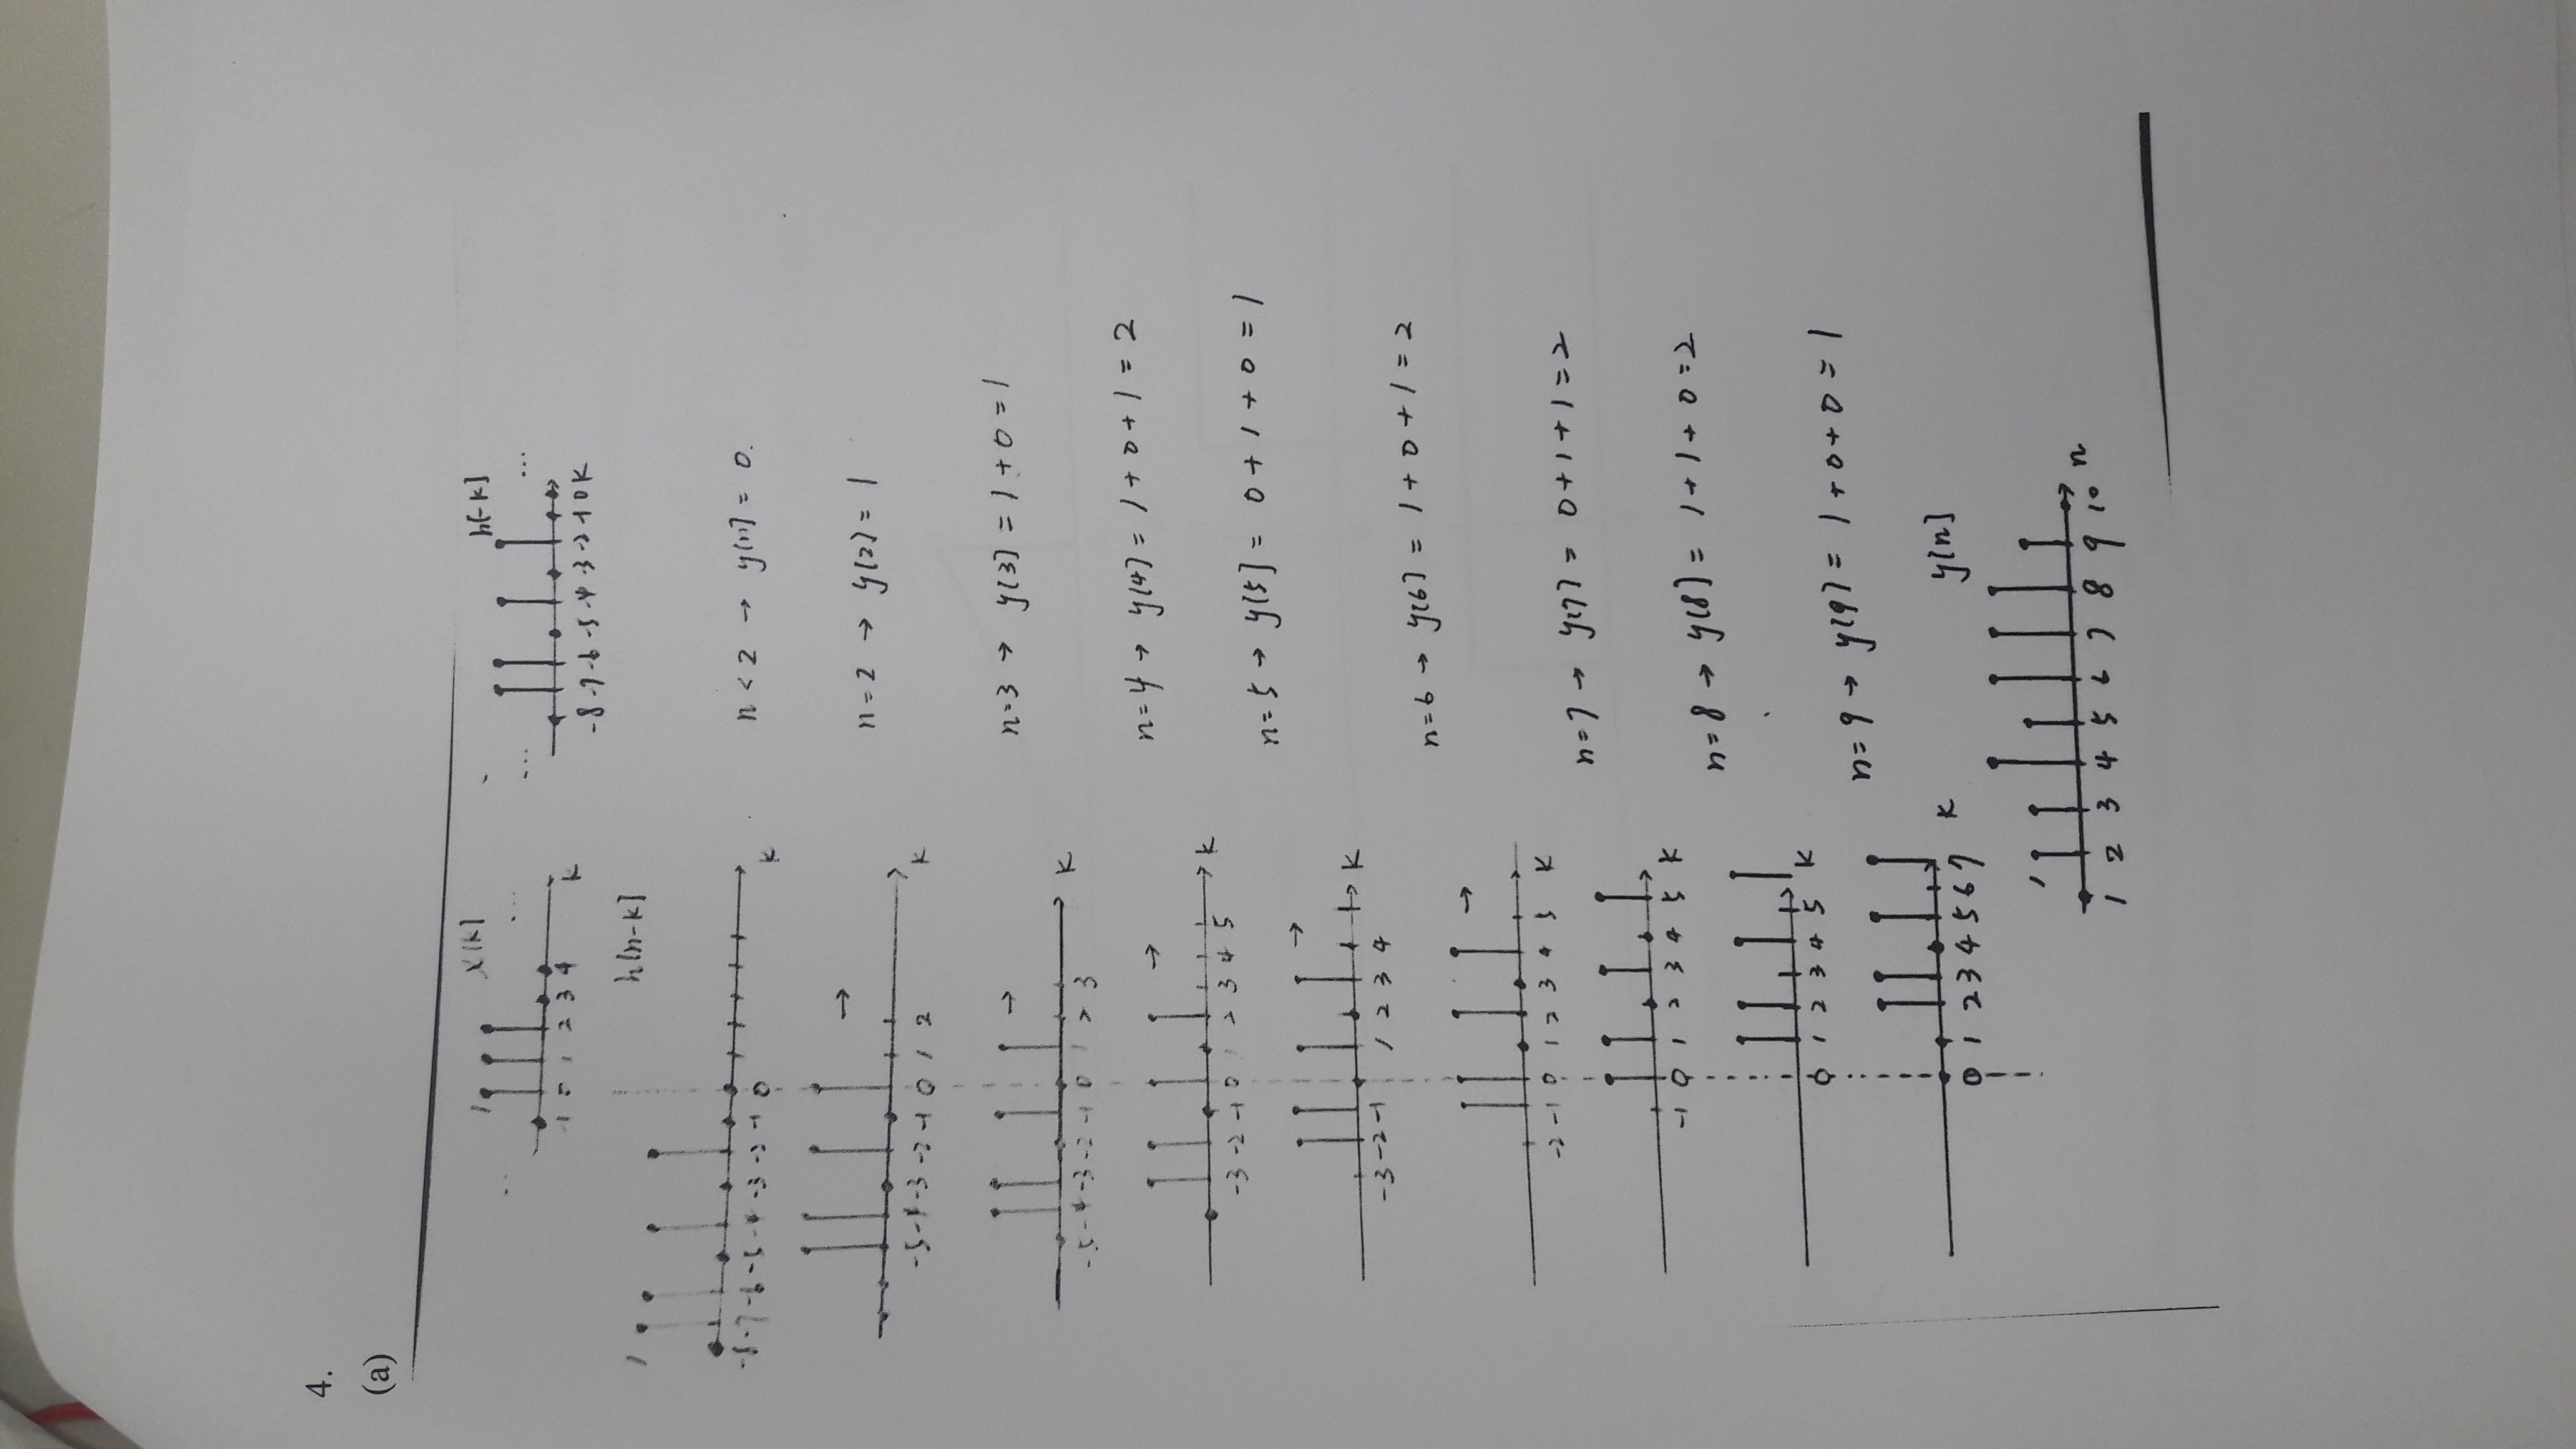 4.
(a)
x[k] h[-k]
1
... ... ... ...
-1 0 1 2 3 4 k
-8 -7 -6 -5 -4 -3 -2 -1 0 k
h[n-k]
1
-8 -7 -6 -5 -4 -3 -2 -1 0 k
n < 2 → y[n] = 0.
n = 2 → y[2] = 1
-5 -4 -3 -2 -1 0 1 2 k
n = 3 → y[3] = 1 + 0 = 1
-5 -4 -3 -2 -1 0 1 2 3 k
n = 4 → y[4] = 1 + 0 + 1 = 2
-3 -2 -1 0 1 2 3 4 5 k
n = 5 → y[5] = 0 + 1 + 0 = 1
-3 -2 -1 1 2 3 4 k
n = 6 → y[6] = 1 + 0 + 1 = 2
-2 -1 0 1 2 3 4 5 k
n = 7 → y[7] = 0 + 1 + 1 = 2
-1 0 1 2 3 4 5 k
n = 8 → y[8] = 1 + 1 + 0 = 2
0 1 2 3 4 5 k
n = 9 → y[9] = 1 + 0 + 0 = 1
0 1 2 3 4 5 6 7 k
y[n]
1
1 2 3 4 5 6 7 8 9 10 n